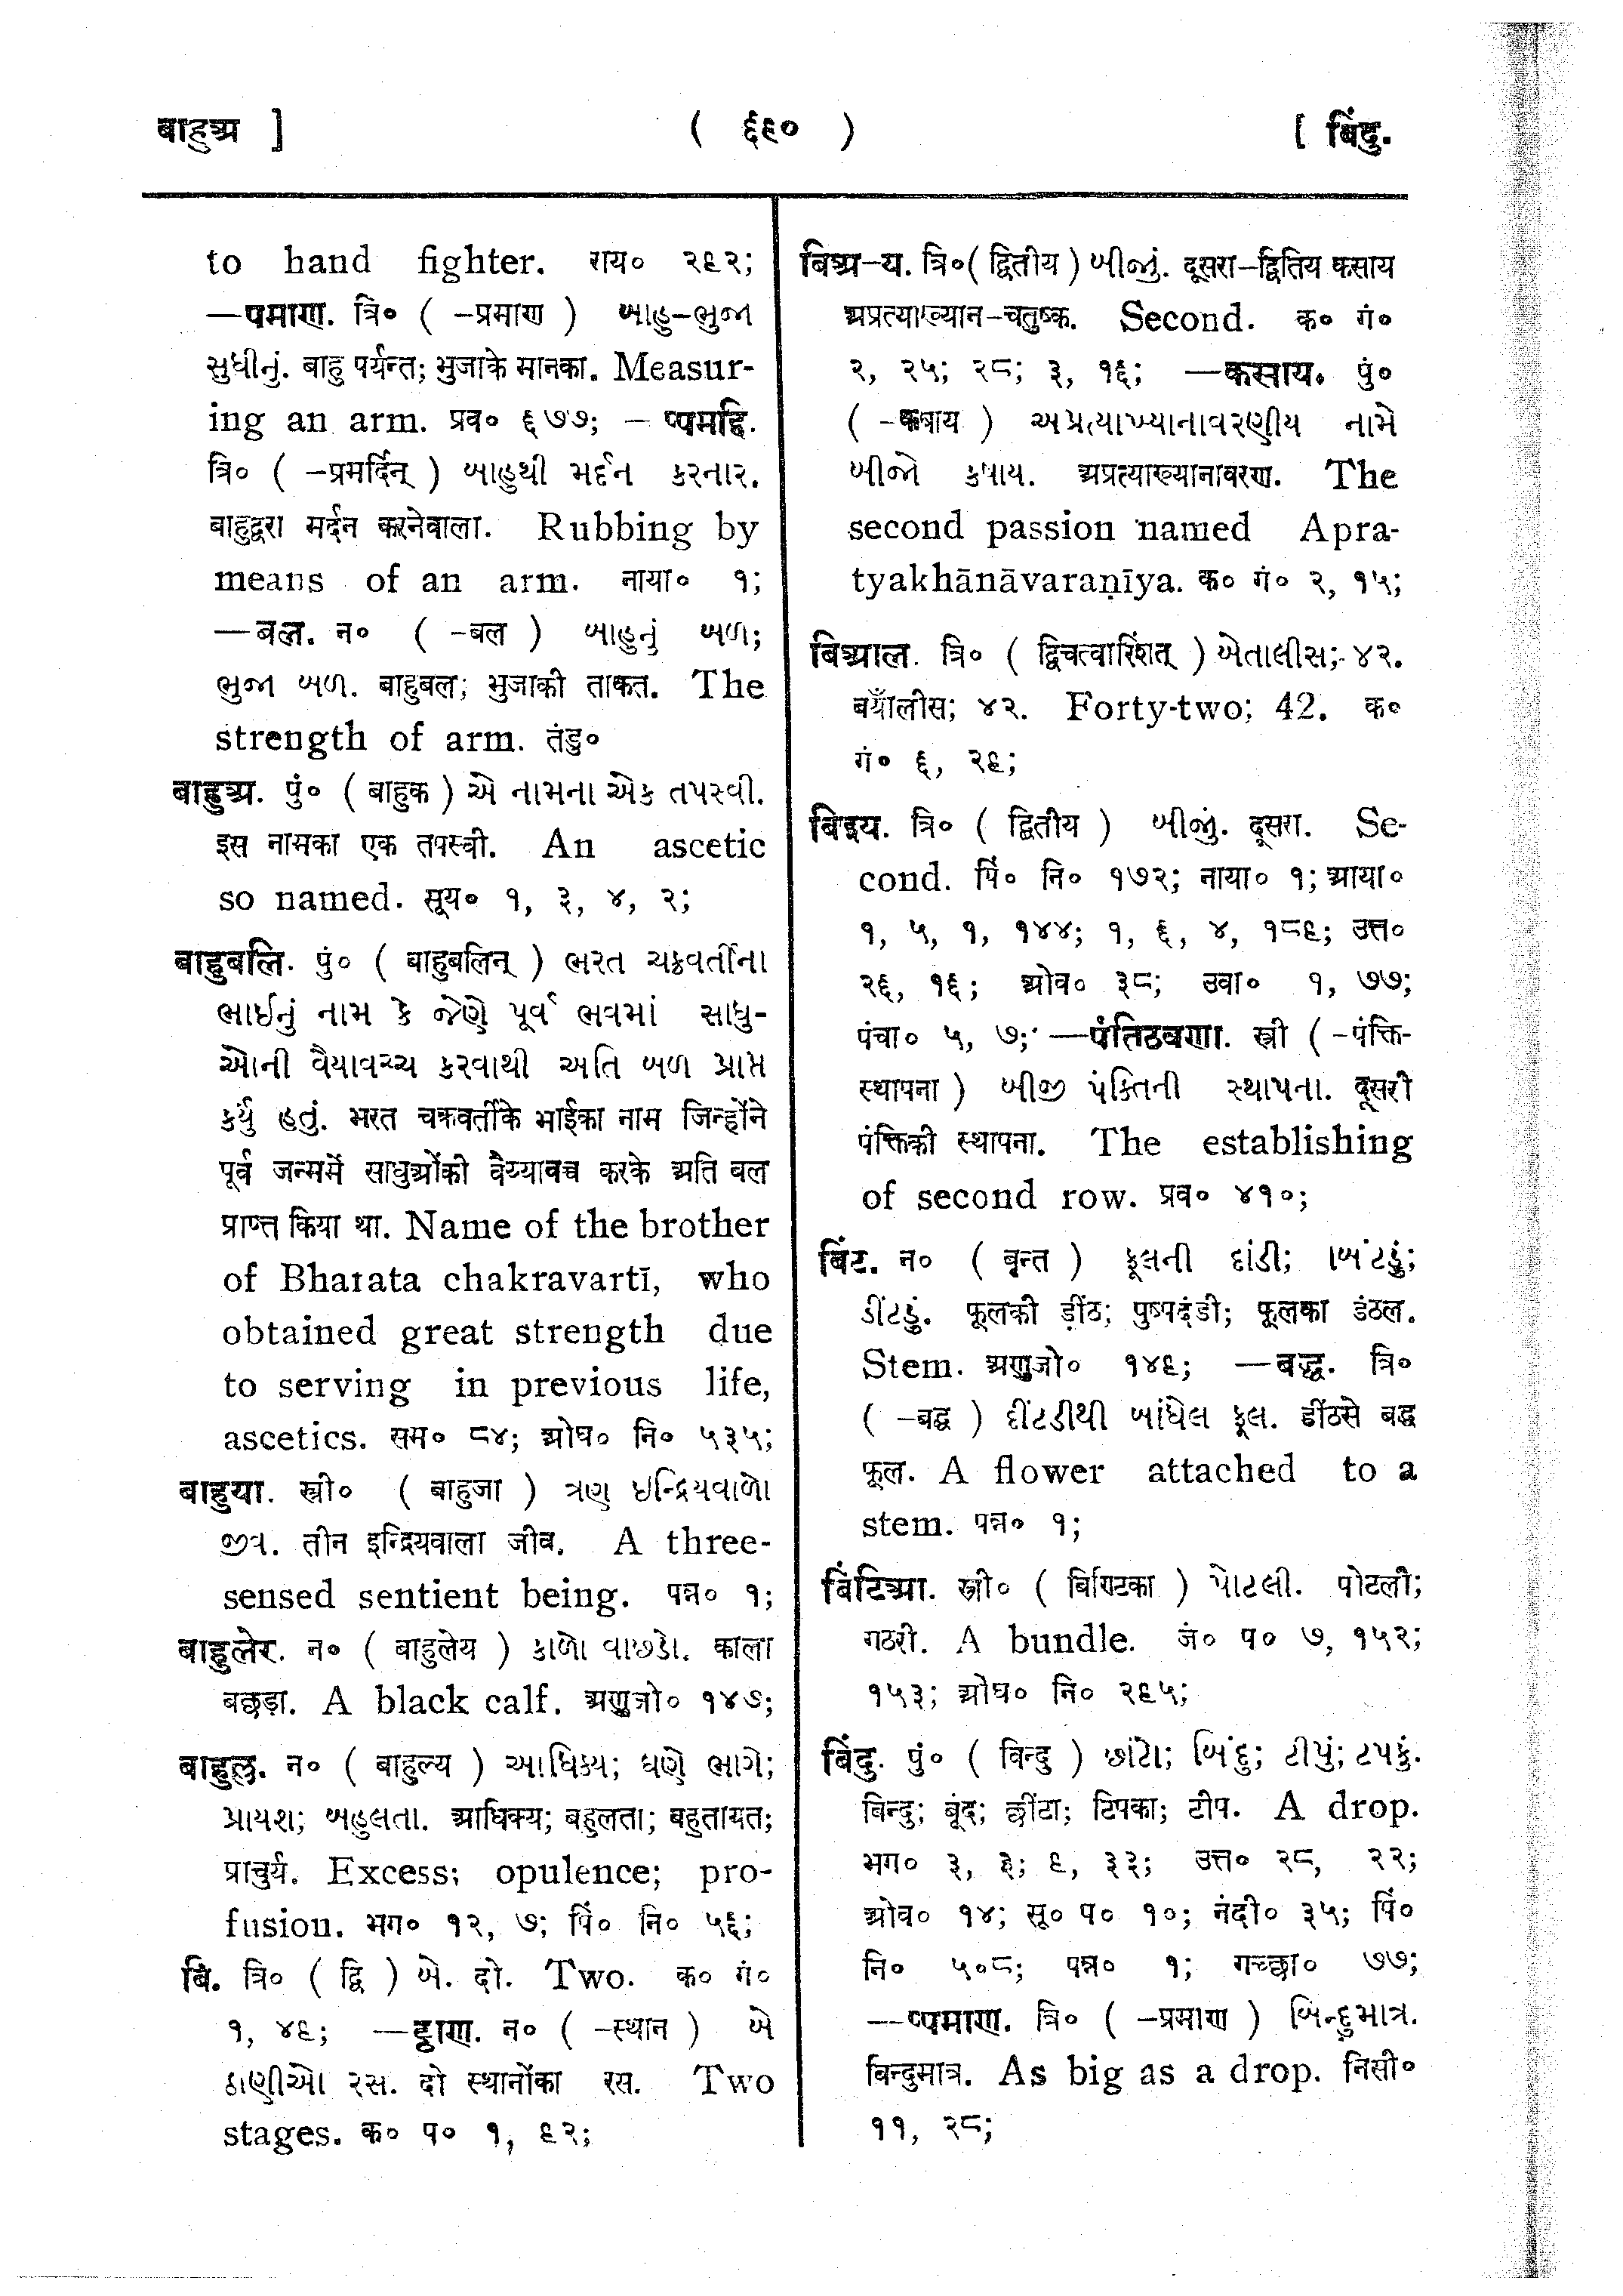 बाहुअ ]
( ६९० )
[ बिंदु.
to hand fighter. राय॰ २९२;
—पमाण. त्रि॰ ( -प्रमाण ) બાહુ-ભુજા
સુધીનું. बाहु पर्यन्त; भुजाके मानका. Measur-
ing an arm. प्रव॰ ६७७; —प्पमद्दि.
त्रि॰ ( -प्रमर्दिन् ) બાહુથી મર્દન કરનાર.
बाहुद्वरा मर्दन करनेवाला. Rubbing by
means of an arm. नाया॰ १;
—बल. न॰ ( -बल ) બાહુનું બળ;
ભુજા બળ. बाहुबल; भुजाकी ताकत. The
strength of arm. तंडु॰
बाहुअ. पुं॰ ( बाहुक ) એ નામના એક તપસ્વી.
इस नामका एक तपस्वी. An ascetic
so named. सूय॰ १, ३, ४, २;
बाहुबलि. पुं॰ ( बाहुबलिन् ) ભરત ચક્રવર્તીના
ભાઈનું નામ કે જેણે પૂર્વ ભવમાં સાધુ-
ઓની વૈયાવચ્ચ કરવાથી અતિ બળ પ્રાપ્ત
કર્યું હતું. भरत चक्रवर्तीके भाईका नाम जिन्होंने
पूर्व जन्ममें साधुओंकी वैय्यावच्च करके अति बल
प्राप्त किया था. Name of the brother
of Bharata chakravartī, who
obtained great strength due
to serving in previous life,
ascetics. सम॰ ८४; ओघ॰ नि॰ ५३५;
बाहुया. स्त्री॰ ( बाहुजा ) ત્રણ ઇન્દ્રિયવાળો
જીવ. तीन इन्द्रियवाला जीव. A three-
sensed sentient being. पन्न॰ १;
बाहुलेर. न॰ ( बाहुलेय ) કાળો વાછડો. काला
बछड़ा. A black calf. अणुजो॰ १४७;
बाहुल्ल. न॰ ( बाहुल्य ) આધિક્ય; ઘણે ભાગે;
પ્રાયશ; બહુલતા. आधिक्य; बहुलता; बहुतायत;
प्राचुर्य. Excess; opulence; pro-
fusion. भग॰ १२, ७; पिं॰ नि॰ ५६;
बि. त्रि॰ ( द्वि ) બે. दो. Two. क॰ गं॰
१, ४९; —ट्ठाण. न॰ ( -स्थान ) બે
ઠાણીઓ રસ. दो स्थानोंका रस. Two
stages. क॰ प॰ १, ९२;
बिअ-य. त्रि॰ ( द्वितीय ) બીજું. दूसरा-द्वितिय कसाय
अप्रत्याख्यान-चतुष्क. Second. क॰ गं॰
२, २५; २८; ३, १६; —कसाय. पुं॰
( -कषाय ) અપ્રત્યાખ્યાનાવરણીય નામે
બીજો કષાય. अप्रत्याख्यानावरण. The
second passion named Apra-
tyakhānāvaraṇīya. क॰ गं॰ २, १५;
बिआल. त्रि॰ ( द्विचत्वारिंशत् ) બેતાલીસ; ૪૨.
बयाँलीस; ४२. Forty-two; 42. क॰
गं॰ ६, २९;
बिइय. त्रि॰ ( द्वितीय ) બીજું. दूसरा. Se-
cond. पिं॰ नि॰ १७२; नाया॰ १; आया॰
१, ५, १, १४४; १, ६, ४, १८९; उत्त॰
२६, १६; ओव॰ ३८; उवा॰ १, ७७;
पंचा॰ ५, ७; —पंतिठवणा. स्त्री ( -पंक्ति-
स्थापना ) બીજી પંક્તિની સ્થાપના. दूसरी
पंक्तिकी स्थापना. The establishing
of second row. प्रव॰ ४१०;
बिंट. न॰ ( वृन्त ) ફૂલની દાંડી; બિંટડું;
ડીંટડું. फूलकी ड़ींठ; पुष्पदंडी; फूलका डंठल.
Stem. अणुजो॰ १४९; —बद्ध. त्रि॰
( -बद्ध ) દીંટડીથી બાંધેલ ફૂલ. डींठसे बद्ध
फूल. A flower attached to a
stem. पन्न॰ १;
बिंटिआ. स्त्री॰ ( बिण्टिका ) પોટલી. पोटली;
गठरी. A bundle. जं॰ प॰ ७, १५२;
१५३; ओघ॰ नि॰ २९५;
बिंदु. पुं॰ ( विन्दु ) છાંટો; બિંદુ; ટીપું; ટપકું.
बिन्दु; बूंद; छींटा; टिपका; टीप. A drop.
भग॰ ३, ३; ९, ३३; उत्त॰ २८, २२;
ओव॰ १४; सू॰ प॰ १०; नंदी॰ ३५; पिं॰
नि॰ ५०८; पन्न॰ १; गच्छा॰ ७७;
—प्पमाण. त्रि॰ ( -प्रमाण ) બિન્દુમાત્ર.
बिन्दुमात्र. As big as a drop. निसी॰
११, २८;